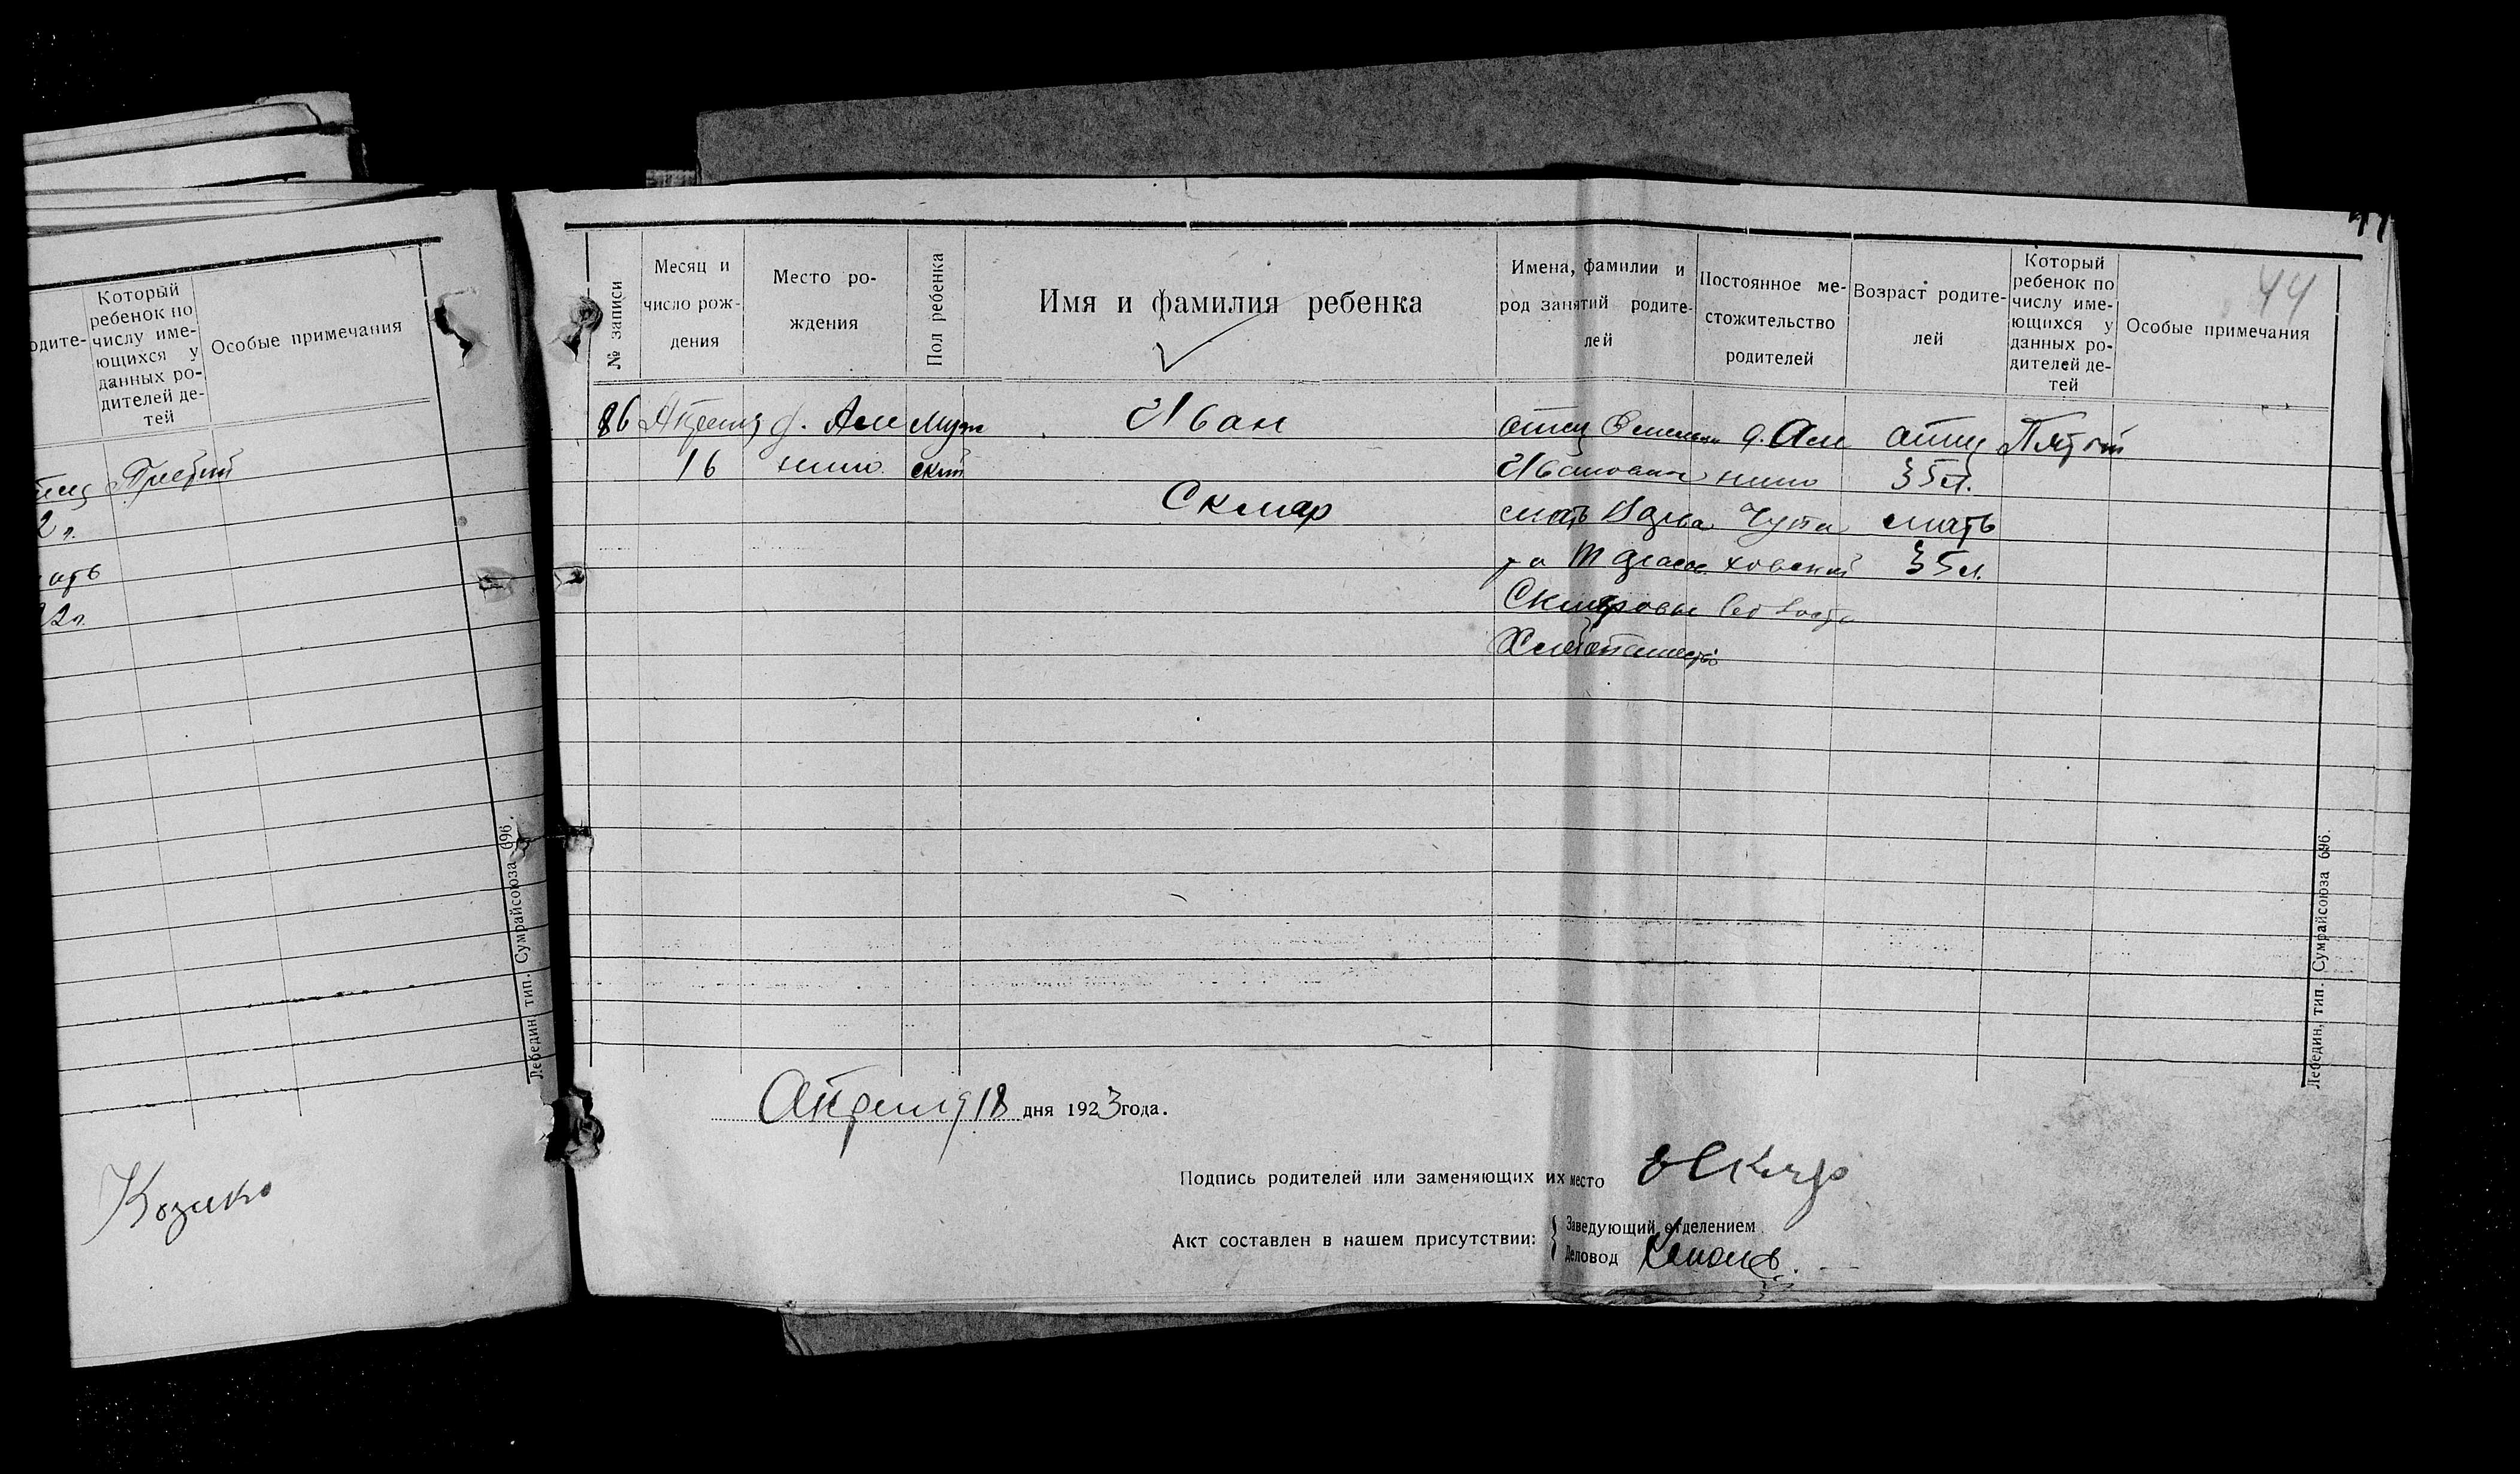 44
одите-
Который
ребенок по
числу име-
ющихся у
данных ро-
дителей де-
тей
Особые примечания
Третий
2 л.
ать
32 л.
Лебедин тип. Сумрайсоюза 696.
Козяко
№ записи
Месяц и
число рож-
дения
Место ро-
ждения
Пол ребенка
Имя и фамилия ребенка
Имена, фамилии и
род занятий родите-
лей
Постоянное ме-
стожительство
родителей
Возраст родите-
лей
Который
ребенок по
числу име-
ющихся у
данных ро-
дителей де-
тей
Особые примечания
86 Апреля д. Але Муж Иван отец д. Але отец Пятый
16 кино ский Иванович кино 35 л.
Скляр мать Чупа мать
ховской 35 л.
Скляровы
Хлебопашество
Апреля 18 дня 1923 года.
Подпись родителей или заменяющих их место
Акт составлен в нашем присутствии:
Заведующий отделением
Деловод
Лебедин, тип. Сумрайсоюза 696.